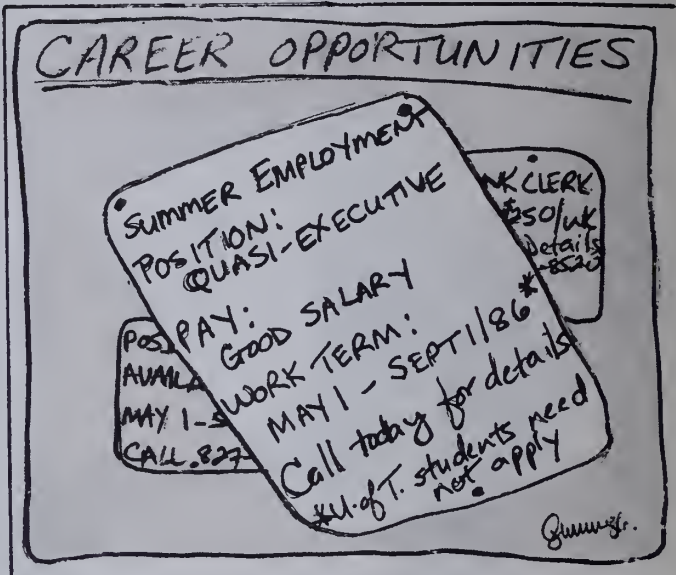 CAREER OPPORTUNITIES
SUMMER EMPLOYMENT
POSITION:
QUASI-EXECUTIVE
PAY:
GOOD SALARY
WORK TERM:
MAY 1 - SEPT 1/86*
Call today for details
*U. of T. students need
not apply
NK CLERK
$250/wk
Details
-8520
POS
AVAILA
MAY 1-S
CALL.827-